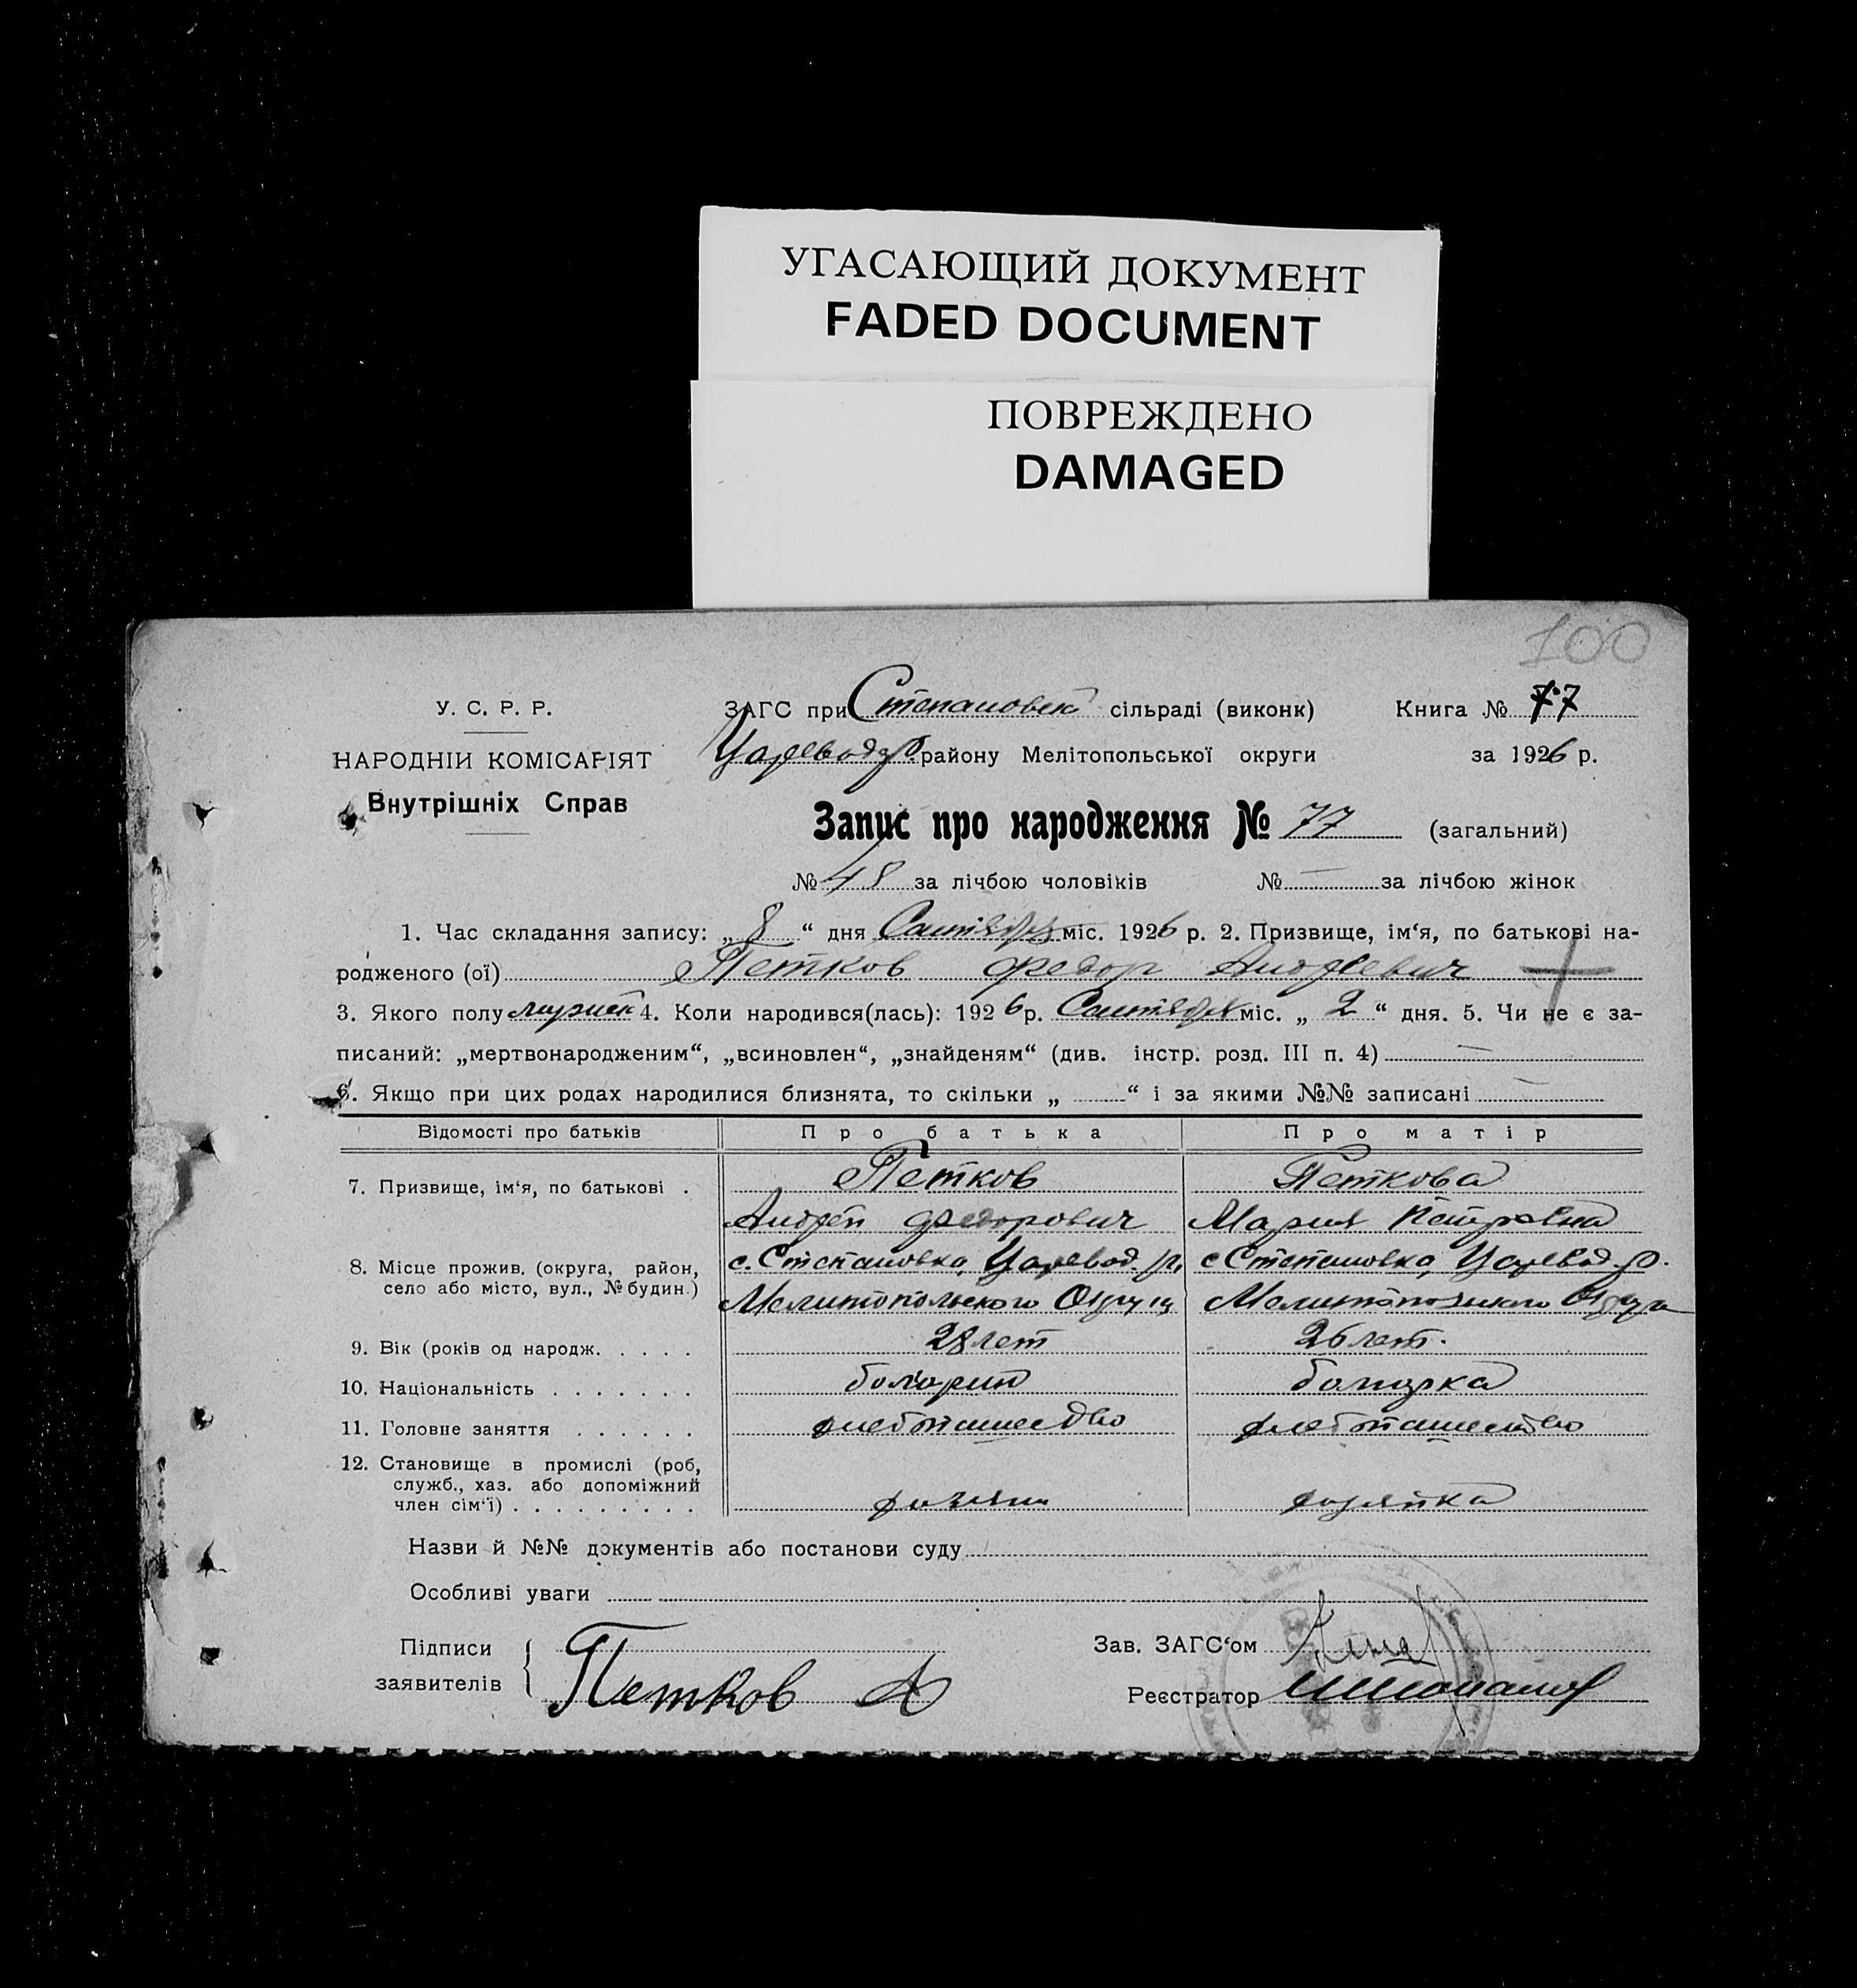 УГАСАЮЩИЙ ДОКУМЕНТ
FADED DOCUMENT
ПОВРЕЖДЕНО
DAMAGED
100
У. С. Р. Р.
НАРОДНІЙ КОМІСАРІЯТ
Внутрішніх Справ
ЗАГС при Степановск сільраді (виконк) Книга № 77
Царевод р. району Мелітопольської округи за 1926 р.
Запис про народження № 77 (загальний)
№ 48 за лічбою чоловіків № — за лічбою жінок
1. Час складання запису: „ 8 “ дня Сентября міс. 1926 р. 2. Призвище, ім‘я, по батькові на-
родженого (ої) Петков Федор Андреевич
3. Якого полу мужск 4. Коли народився(лась): 1926 р. Сентября міс. „ 2 “ дня. 5. Чи не є за-
писаний: „мертвонародженим“, „всиновлен“, „знайденям“ (див. інстр. розд. III п. 4) —
6. Якщо при цих родах народилися близнята, то скільки „ “ і за якими №№ записані —
Відомості про батьків Про батька Про матір
7. Призвище, ім‘я, по батькові . Петков Петкова
Андрей Федорович Мария Петровна
8. Місце прожив. (округа, район, с. Степановка, Царевод. р. с Степановка, Царевод. р.
село або місто, вул., № будин.) Мелитопольского Округа Мелитопольского Округа
9. Вік (років од народж. . . . . 28 лет 26 лет.
10. Національність . . . . . . . болгарин болгарка
11. Головне заняття . . . . . . хлебопашество хлебопашество
12. Становище в промислі (роб,
служб., хаз. або допоміжний
член сім‘ї) . . . . . . . . . хозяин хозяйка
Назви й №№ документів або постанови суду
Особливі уваги
Підписи
заявителів
Петков А
Зав. ЗАГС‘ом
Реєстратор